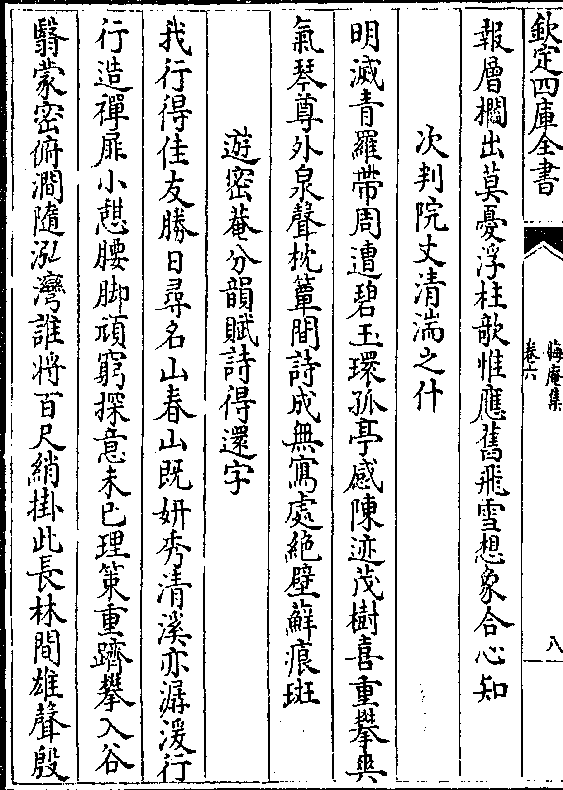 欽定四庫全書
晦庵集
卷六
八
報層欄出莫憂浮柱欹惟應舊飛雪想象合心知
次判院丈清湍之什
明滅青羅帶周遭碧玉環孤亭感陳迹茂樹喜重攀爽
氣琴尊外泉聲枕簟間詩成無寫處絶壁蘚痕斑
遊密菴分韻賦詩得還字
我行得佳友勝日尋名山春山既妍秀清溪亦潺湲行
行造禪扉小憇腰脚頑窮探意未已理策重躋攀入谷
翳蒙密俯澗隨泓灣誰將百尺綃掛此長林間雄聲殷